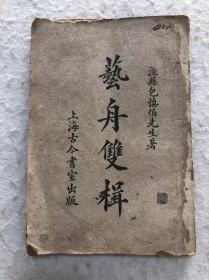 涇縣包慎伯先生著
藝舟雙楫
上海古今書室出版